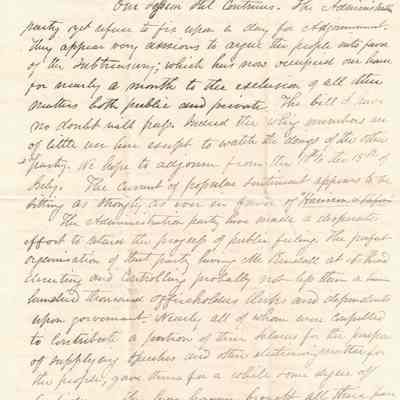 Our session still continues. The Administration
party yet refuse to fix upon a day for Adjournment.
They appear very anxious to argue the people into favor
of the Subtreasury; which has now occupied our time
for nearly a month to the exclusion of all other
matters both public and private. The bill I have
no doubt will pass. Indeed the whig members are
of little use here except to watch the doings of the other
party. We hope to adjourn from the 8th to the 15th of
July. The current of popular sentiment appears to be
setting as strongly as ever in favor of Harrison
The Administration party have made a desperate
effort to retard the progress of public feeling. The perfect
organisation of that party having Mr Kendall at its head
directing and controlling probably not less than a
hundred thousand officeholders clerks and dependents
upon government. Nearly all of whom were compelled
to contribute a portion of their salaries for the purpose
of supplying speeches and other electioneering matter for
the people, gave them for a while some degree of
The have brought all their